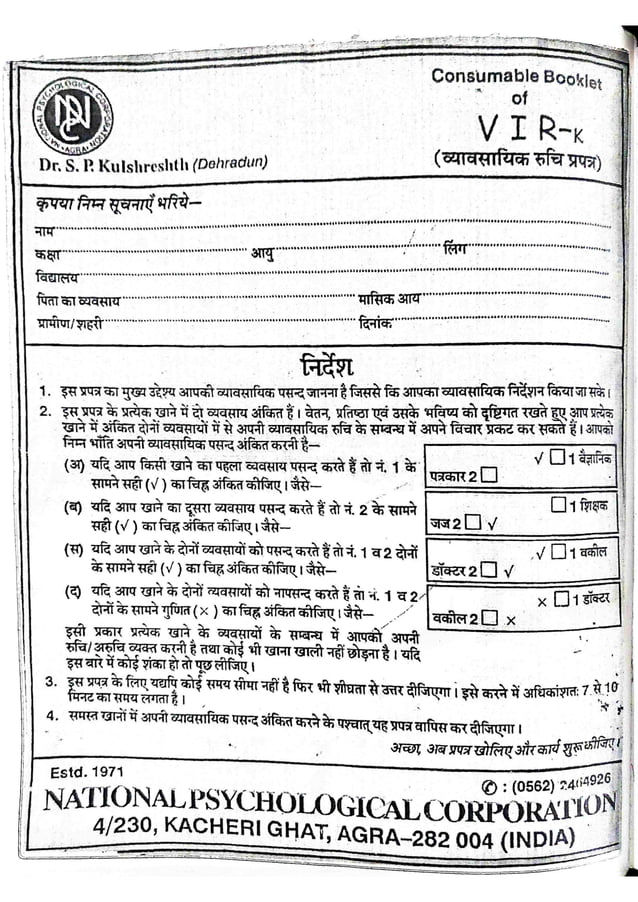 NATIONAL PSYCHOLOGICAL CORPORATION
AGRA
NPC
Dr. S. P. Kulshreshth (Dehradun)
Consumable Booklet
of
VIR-K
(व्यावसायिक रुचि प्रपत्र)
कृपया निम्न सूचनाएँ भरिये—
नाम
कक्षा आयु लिंग
विद्यालय
पिता का व्यवसाय मासिक आय
ग्रामीण/शहरी दिनांक
निर्देश
1. इस प्रपत्र का मुख्य उद्देश्य आपकी व्यावसायिक पसन्द जानना है जिससे कि आपका व्यावसायिक निर्देशन किया जा सके।
2. इस प्रपत्र के प्रत्येक खाने में दो व्यवसाय अंकित हैं। वेतन, प्रतिष्ठा एवं उसके भविष्य को दृष्टिगत रखते हुए आप प्रत्येक
खाने में अंकित दोनों व्यवसायों में से अपनी व्यावसायिक रुचि के सम्बन्ध में अपने विचार प्रकट कर सकते हैं। आपको
निम्न भाँति अपनी व्यावसायिक पसन्द अंकित करनी है—
(अ) यदि आप किसी खाने का पहला व्यवसाय पसन्द करते हैं तो नं. 1 के
सामने सही (√) का चिह्न अंकित कीजिए। जैसे—
√ □ 1 वैज्ञानिक
पत्रकार 2 □
(ब) यदि आप खाने का दूसरा व्यवसाय पसन्द करते हैं तो नं. 2 के सामने
सही (√) का चिह्न अंकित कीजिए। जैसे—
□ 1 शिक्षक
जज 2 □ √
(स) यदि आप खाने के दोनों व्यवसायों को पसन्द करते हैं तो नं. 1 व 2 दोनों
के सामने सही (√) का चिह्न अंकित कीजिए। जैसे—
√ □ 1 वकील
डॉक्टर 2 □ √
(द) यदि आप खाने के दोनों व्यवसायों को नापसन्द करते हैं तो नं. 1 व 2
दोनों के सामने गुणित (×) का चिह्न अंकित कीजिए। जैसे—
× □ 1 डॉक्टर
वकील 2 □ ×
इसी प्रकार प्रत्येक खाने के व्यवसायों के सम्बन्ध में आपको अपनी
रुचि/अरुचि व्यक्त करनी है तथा कोई भी खाना खाली नहीं छोड़ना है। यदि
इस बारे में कोई शंका हो तो पूछ लीजिए।
3. इस प्रपत्र के लिए यद्यपि कोई समय सीमा नहीं है फिर भी शीघ्रता से उत्तर दीजिएगा। इसे करने में अधिकांशतः 7 से 10
मिनट का समय लगता है।
4. समस्त खानों में अपनी व्यावसायिक पसन्द अंकित करने के पश्चात् यह प्रपत्र वापिस कर दीजिएगा।
अच्छा, अब प्रपत्र खोलिए और कार्य शुरू कीजिए।
Estd. 1971
✆ : (0562) 2464926
NATIONAL PSYCHOLOGICAL CORPORATION
4/230, KACHERI GHAT, AGRA–282 004 (INDIA)